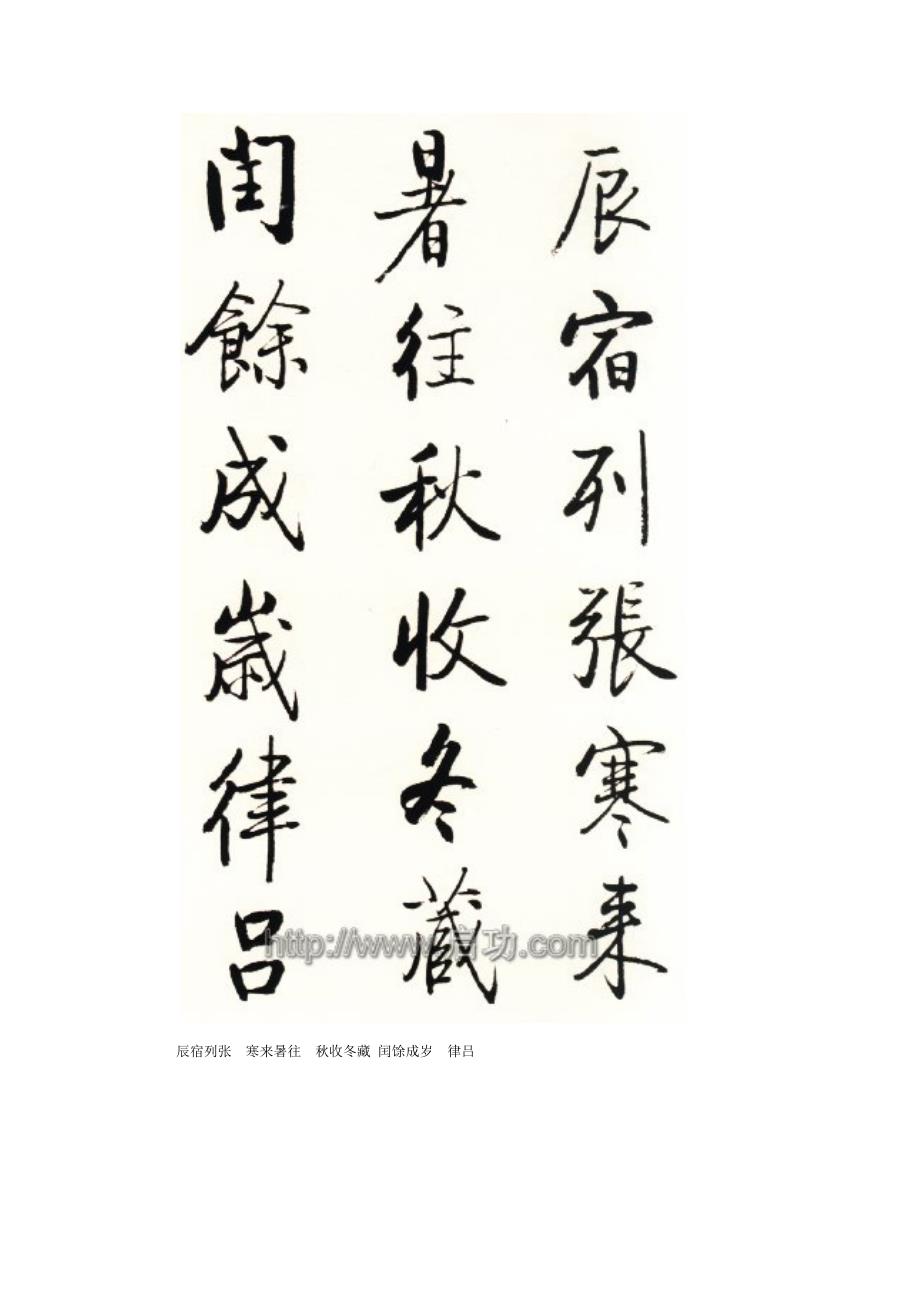 辰宿列張寒来
暑往秋收冬藏
閏餘成歳律吕
http://www.启功.com
辰宿列张　寒来暑往　秋收冬藏 闰馀成岁　律吕